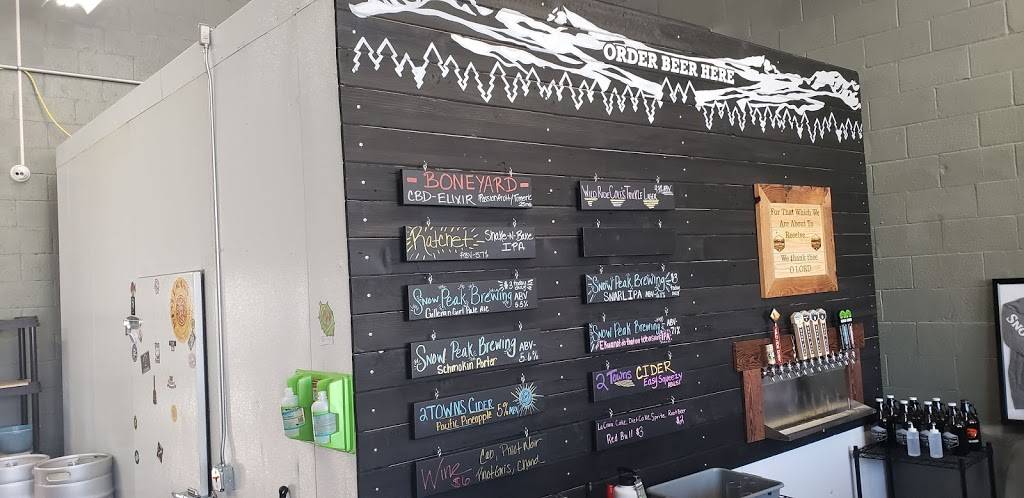 ORDER BEER HERE
BONEYARD
CBD-ELIXIR Passionfruit/Tumeric
Ratchet Snake-N-Bake
IPA
Snow Peak Brewing ABV
5.5%
Pale Ale
Snow Peak Brewing ABV-
5.6%
Schmokin Porter
2TOWNS CIDER 5% ABV
Pacific Pineapple
Wine Cab, Pinot Noir
$6 Photeris, Chard
Snow Peak Brewing $3
SNARL IPA
Snow Peak Brewing ABV-
7.1%
IPA
2 Towns CIDER
Easy Squeezy
La Croix, Coke, Diet Coke, Sprite, Rootbeer
Red Bull $3 $2
For That Which We
Are About To
Receive...
We thank thee
O LORD